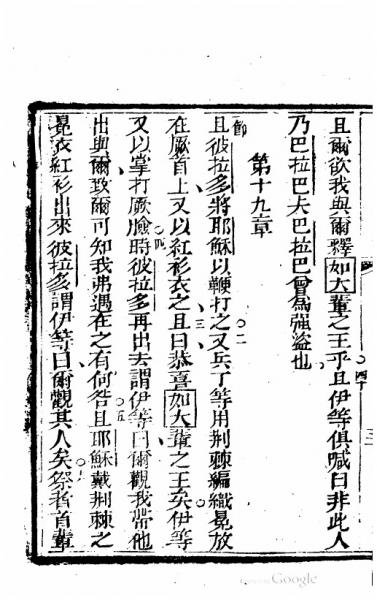 且爾欲我與爾釋如大輩之王乎且伊等俱喊曰非此人
乃巴拉巴夫巴拉巴曾為強盜也
第十九章
節
且彼拉多將耶穌以鞭打之又兵丁等用荆棘編織冕放
在厥首上又以紅衫衣之且曰恭喜如大輩之王矣伊等
又以掌打厥臉時彼拉多再出去謂伊等曰爾觀我帶他
出與爾致爾可知我弗遇在之有何咎且耶穌戴荆棘之
冕衣紅衫出來彼拉多謂伊等曰爾觀其人矣祭者首輩
四十
二
三
四
五
六
Google